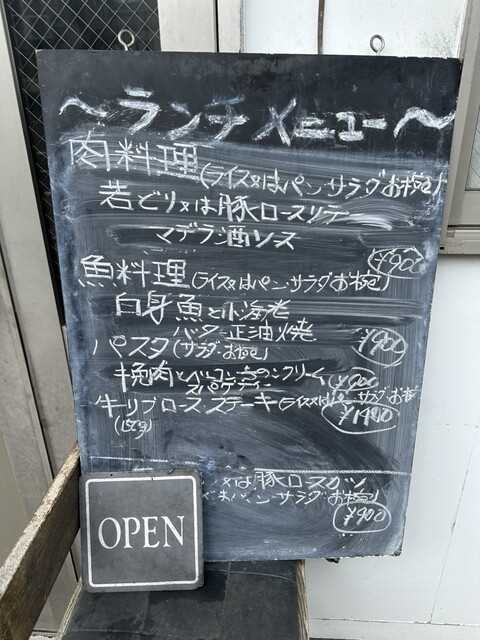 〜ランチメニュー〜
肉料理(ライス又はパン・サラダ・お椀)
若どり又は豚ロースソテー
マデラ酒ソース
¥900
魚料理(ライス又はパン・サラダお椀)
白身魚と小海老
バター正油焼
¥900
パスタ(サラダ・お椀)
牛挽肉とベーコン
のクリーム
スパゲティー
¥900
牛リブロース・ステーキ(ライス又はパン・サラダ・お椀
¥1400
又は豚ロースカツ
はパン・サラダ・お椀)
¥900
OPEN